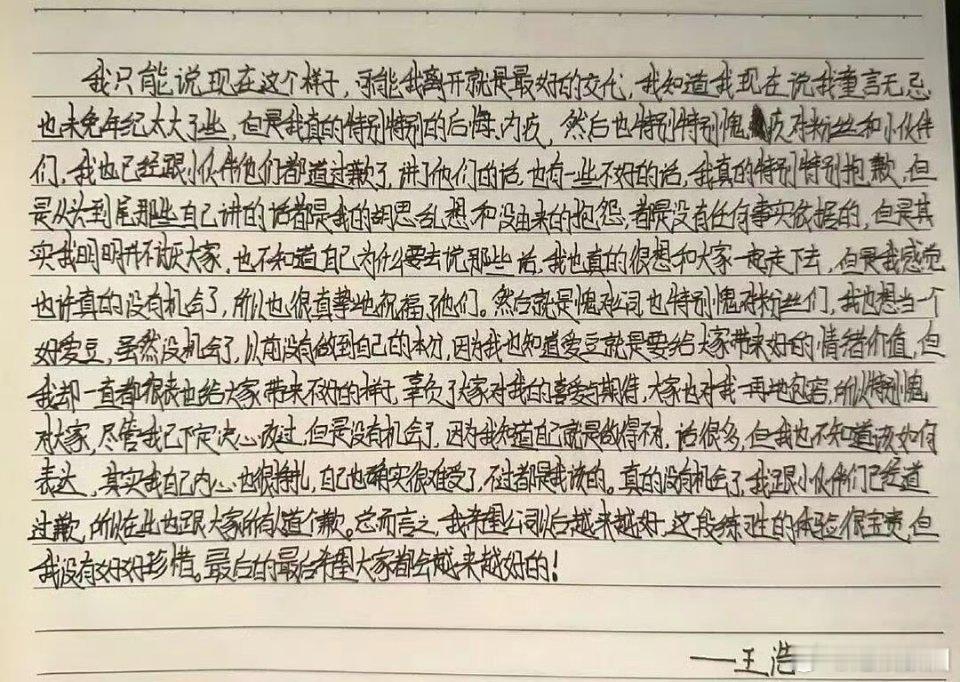 我只能说现在这个样子，可能我离开就是最好的交代，我知道我现在说我童言无忌
也未免年纪太大了些，但是我真的特别特别的后悔、内疚，然后也特别特别愧疚对粉丝和小伙伴
们，我也已经跟小伙伴他们都道过歉了，讲了他们的话，也有一些不好的话，我真的特别特别抱歉，但
是从头到尾那些自己讲的话都是我的胡思乱想和没由来的抱怨，都是没有任何事实依据的，但是其
实我明明并不讨厌大家，也不知道自己为什么要去说那些话，我也真的很想和大家一起走下去，但是我感觉
也许真的没有机会了，所以也很真挚地祝福了他们。然后就是愧对公司也特别愧对粉丝们，我也想当一个
好爱豆，虽然没机会了，以前没有做到自己的本分，因为我也知道爱豆就是要给大家带来好的情绪价值，但
我却一直都很丧也给大家带来不好的样子，辜负了大家对我的喜爱与期待，大家也对我一再地包容，所以特别愧
对大家，尽管我已下定决心改过，但是没有机会了，因为我知道自己就是做得不对，话很多，但我也不知道该如何
表达，其实我自己内心也很挣扎，自己也确实很难受了，不过都是我该的。真的没有机会了，我跟小伙伴们已经道
过歉，所以在此也跟大家所有人道个歉。总而言之，我希望公司以后越来越好，这段练习生的体验很宝贵，但
我没有好好珍惜。最后的最后希望大家都会越来越好的！
——王浩